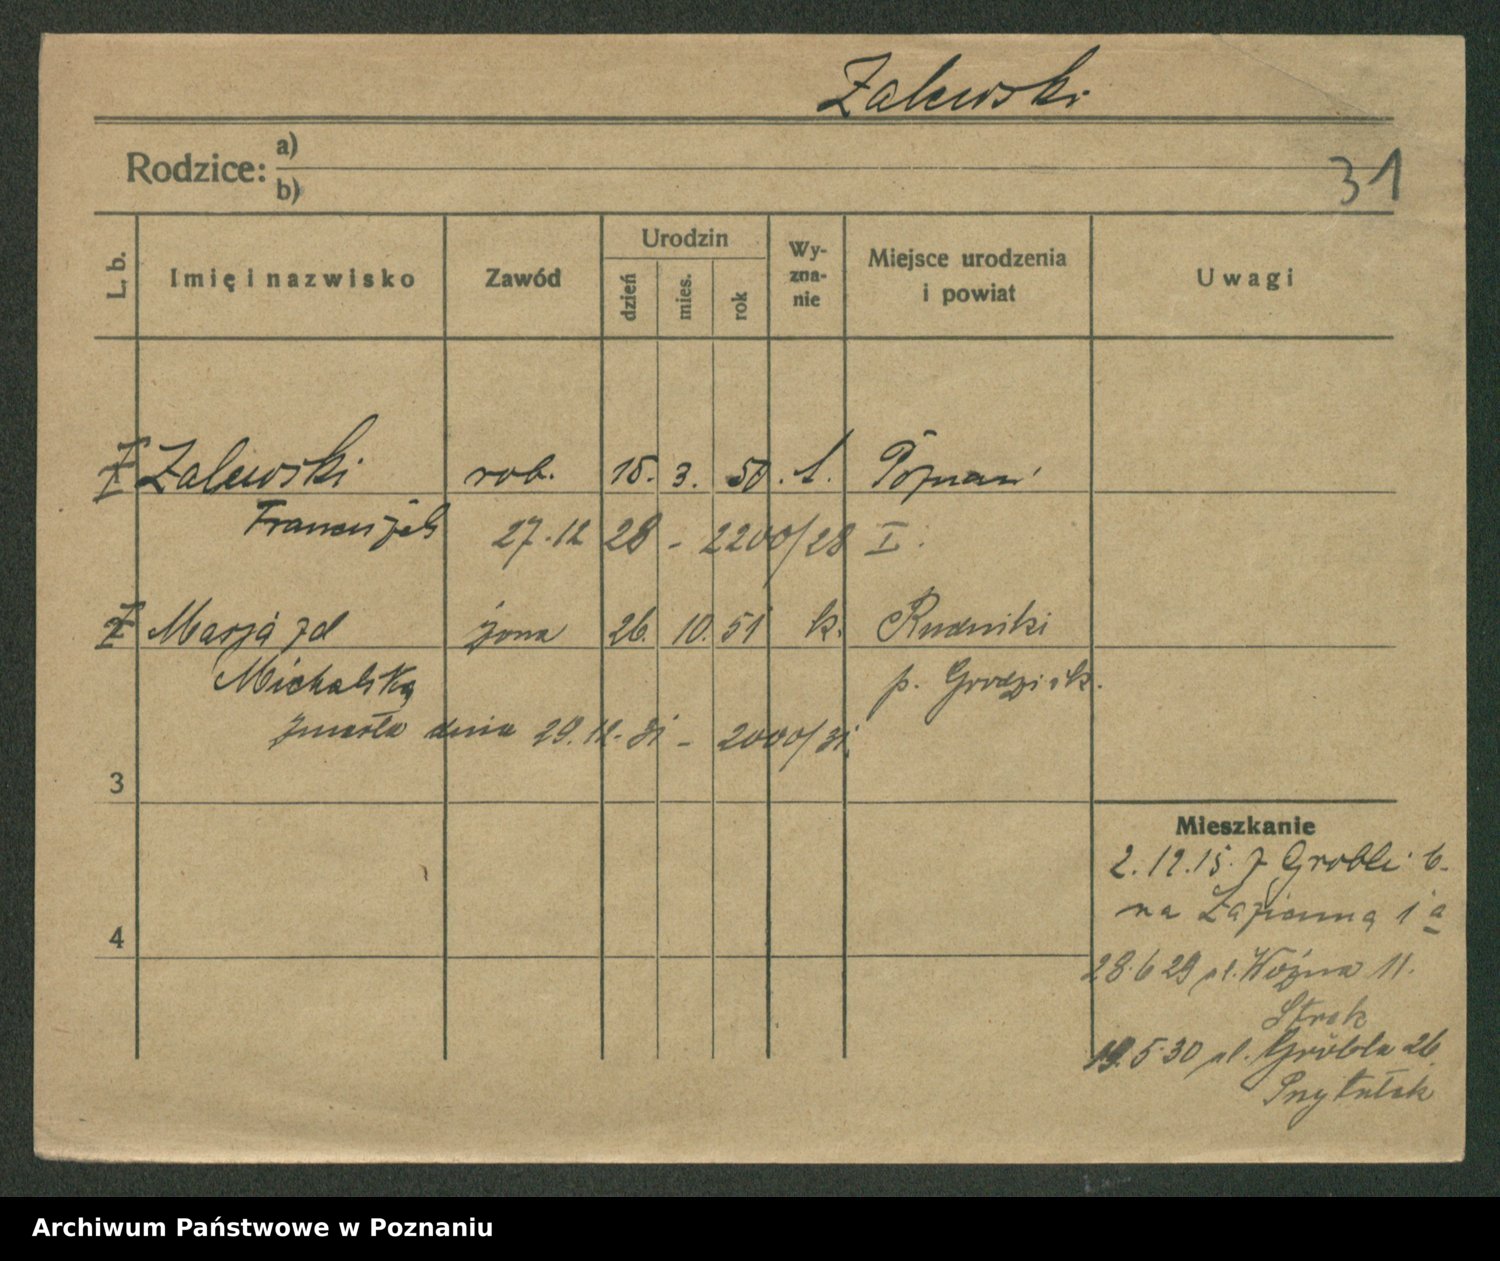 Zalewski
Rodzice: a)
b)
31
L. b.
Imię i nazwisko
Zawód
Urodzin
dzień
mies.
rok
Wy-
zna-
nie
Miejsce urodzenia
i powiat
Uwagi
Zalewski rob. 15. 3. 50. Poznań
Franciszek 27.12 28 - 2200/28 I.
Marja zd żona 26. 10. 51 k. Rudniki
Michalska p. Grodzisk.
zmarła dnia 29.12.31 - 2000/31
3
4
Mieszkanie
2.12.15. z Grobli 6.
na Łazienną 1a
28.6 29 ul. Woźna 11.
19.5.30 ul. Grobla 26
Przytułek
Archiwum Państwowe w Poznaniu